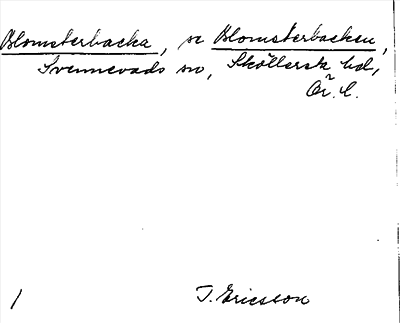 Blomsterbacka, se Blomsterbacken,
Svennevads sn, Sköllersk hd,
Ör. l.
/ T. Ericsson